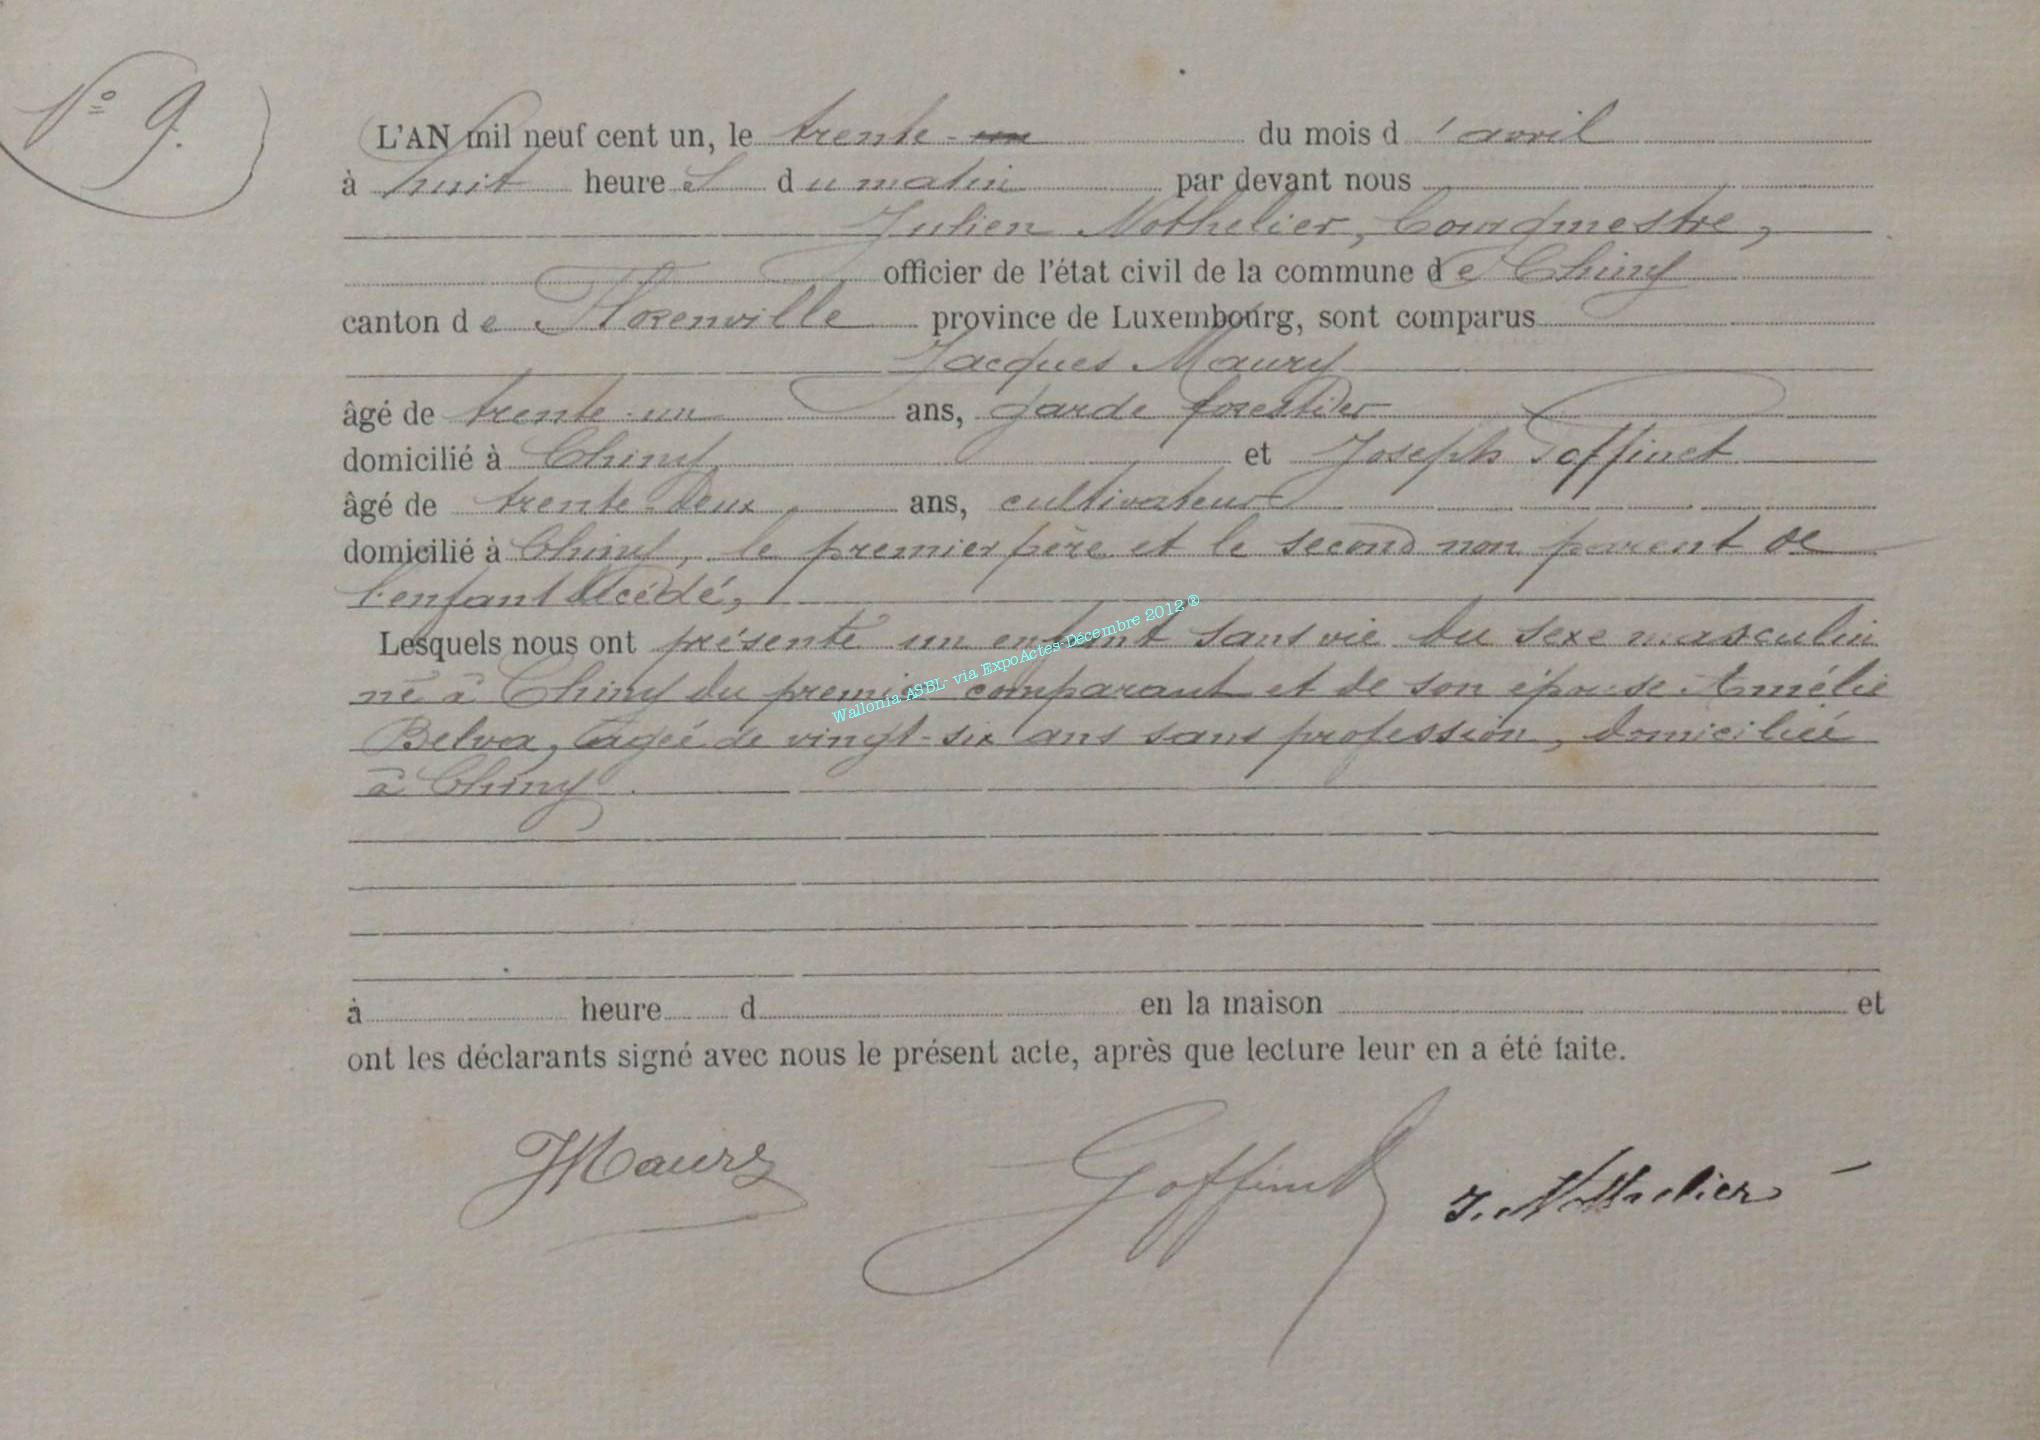 N° 9.
L'AN mil neuf cent un, le trente-un du mois d'avril
à huit heures du matin par devant nous
Julien Nothelier, bourgmestre,
officier de l'état civil de la commune de Chiny
canton de Florenville province de Luxembourg, sont comparus
Jacques Maury
âgé de trente-un ans, garde forestier
domicilié à Chiny et Joseph Goffinet
âgé de trente-deux ans, cultivateur
domicilié à Chiny, le premier père et le second non parent de
l'enfant décédé,
Lesquels nous ont présenté un enfant sans vie du sexe masculin
né à Chiny du premier comparant et de son épouse Amélie
Belva, agée de vingt-six ans sans profession, domiciliée
à Chiny.
Wallonia ASBL- via ExpoActes-Décembre 2012 ®
à heure d en la maison et
ont les déclarants signé avec nous le présent acte, après que lecture leur en a été faite.
JMaury Goffinet J. Nothelier